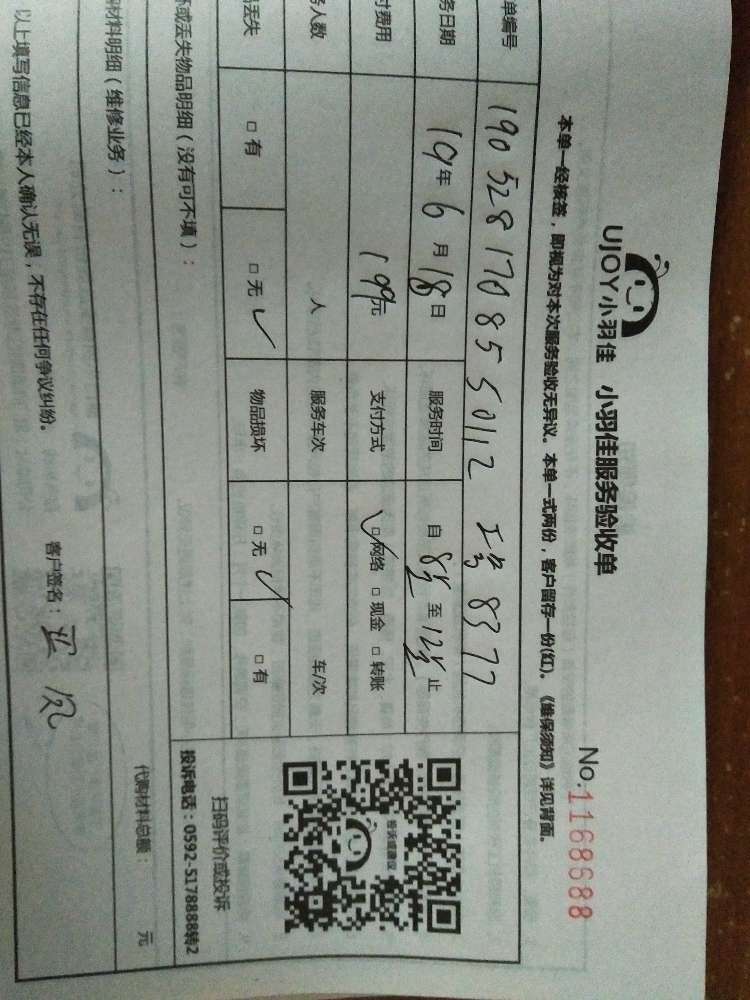 UJOY小羽佳 小羽佳服务验收单
No.1168688
本单一经核签，即视为对本次服务验收无异议。本单一式两份，客户留存一份(红)。《维保须知》详见背面。
单编号 190528170855012 工号 8377
务日期 19年6月18日 服务时间 自 8点 至 12点 止
付费用 199元 支付方式 □网络 □现金 □转账
务人数 人 服务车次 车/次
丢失 □有 □无 物品损坏 □无 □有
坏或丢失物品明细（没有可不填）：
材料明细（维修业务）：
代购材料总额： 元
扫码评价或投诉
投诉电话：0592-5178888转2
以上填写信息已经本人确认无误，不存在任何争议纠纷。 客户签名：